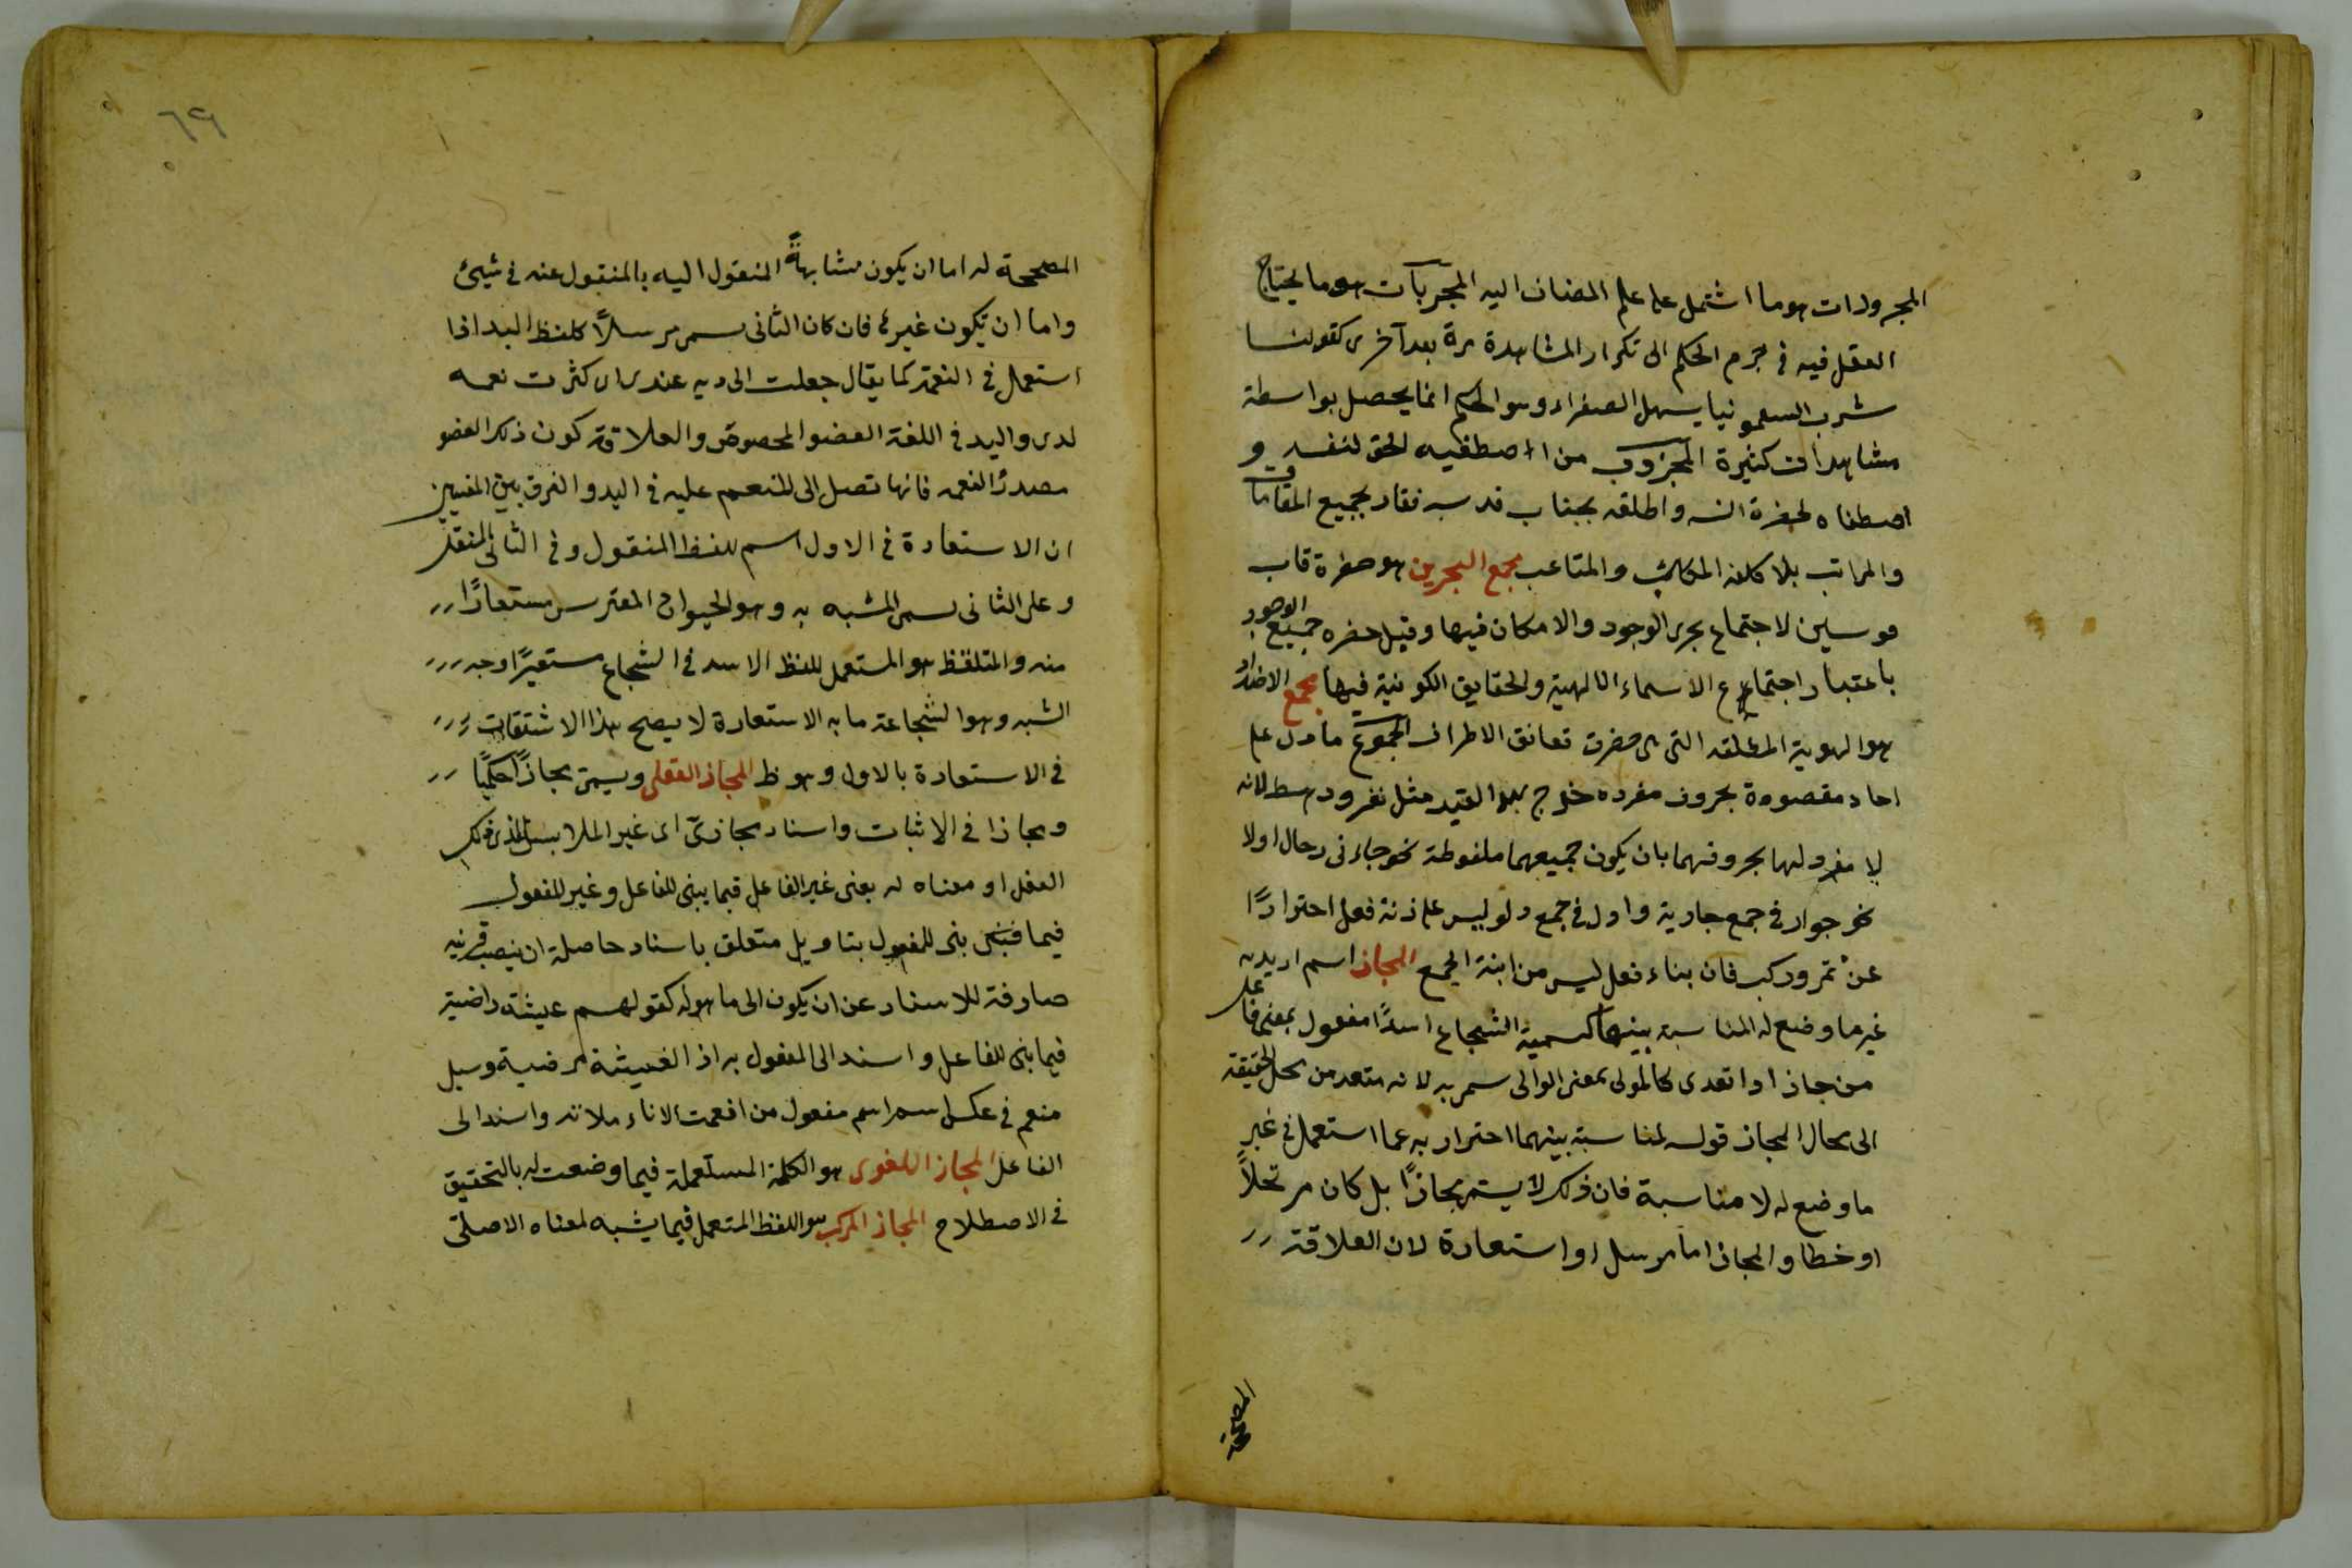 المجرورات هو ما اشتمل على علم المضاف اليه المجربات هو ما يحتاج
العقل فيه فى جزم الحكم الى تكرار المشاهدة مرة بعد آخرى كقولنا
شرب السقمونيا يسهل الصفراء وهو الحكم انما يحصل بواسطة
مشاهدات كثيرة المجزوب من اصطفيه الحق لنفسه و
اصطفاه لحضرة انسه واطلقه بجناب قدسه ففاد بجميع المقامات
والمراتب بلا كلفه المكاسب والمتاعب مجمع البحرين هو حضرة قاب
قوسين لاجتماع بحرى الوجود والامكان فيها وقيل حضره جميع الوجود
باعتبار اجتماع الاسماء الالهية والحقايق الكونية فيها مجمع الاضداد
هو الهوية المطلقه التى هى حضرت تعانق الاطراف المجموع ما دل على
احاد مقصودة بحروف مفرده خرج بهذا القيد مثل نفر ورهط لانه
لا مفرد لهما بحروفهما بان يكون جميعهما ملفوظة نحو جاءنى رجال اولا
نحو جوار فى جمع جارية وادل فى جمع دلو ليس على زنة فعل احترازًا
عن تمر وركب فان بناء فعل ليس من ابنة الجمع المجاز اسم اريد به
غير ما وضع له المناسبة بينهما كتسمية الشجاع اسدًا مفعول بمعنى فاعل
من جاز اذا تعدى كالمولى بمعنى الوالى سمى به لانه متعد من محل الحقيقة
الى محال المجاز قوله لمناسبة بينهما احترار به عما استعمل فى غير
ما وضع له لا مناسبة فان ذلك لا يسمى مجازًا بل كان مرتجلاً
او خطا والمجاز اما مرسل او استعارة لان العلاقة
المصححة
٦٩
المصححة له اما ان يكون مشابهةً المنقول اليه بالمنقول عنه فى شيئ
واما ان تكون غيرها فان كان الثانى سمى مرسلاً كلفظ اليد اذا
استعمل فى النعمة كما يقال جعلت اياديه عندى اى كثرت نعمه
لدى واليد فى اللغة العضو المخصوص والعلاقة كون ذلك العضو
مصدرًا لنعمه فانها تصل الى المنعم عليه فى اليد والفرق بين المعنيين
ان الاستعارة فى الاول اسم للفظ المنقول وفى الثانى للنقل
وعلى الثانى سمى المشبه به وهو الحيوان المفترس مستعارًا
منه والمتلفظ هو المستعمل للفظ الاسد فى الشجاع مستعيرًا وجه
الشبه وهو الشجاعة ما به الاستعارة لا يصح هذا الاشتقاق
فى الاستعارة بالاول وهو ظ المجاز العقلى ويسمى مجازًا حكميًا
ومجازا فى الاثبات واسناد مجازىّ اى غير الملابس الذى ذلك
العفل او معناه له بعنى غير الفاعل فيما يبنى للفاعل وغير للمفعول
فيما بنى للمفعول بتاويل متعلق باسناد حاصلة ان ينصب قرينه
صارفة للاسناد عن ان يكون الى ما هو له كقولهم عيشة راضية
فيما بنى للفاعل واسند الى المفعول به اذ العيشة مرضية وسيل
منعم فى عكسه اسم مفعول من افعمت الاناء ملاته واسند الى
الفاعل المجاز اللغوى هو الكلمة المستعملة فيما وضعت له بالتحقيق
فى الاصطلاح المجاز المركب هو اللفظ المتعمل فيما يشبه لمعناه الاصلىّ